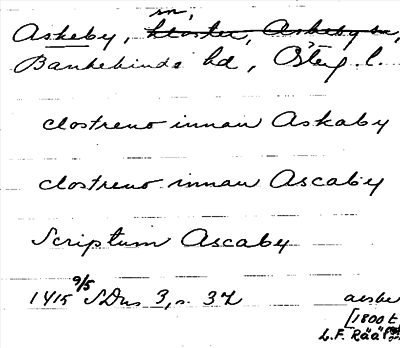 sn,
Askeby, kloster, Askeby sn,
Bankekinds hd, Östg. l.
clostreno innan Askaby
clostreno innan Ascaby
Scriptum Ascaby
1415 9/5 SDns 3, s. 37
[1800 t
L.F. Rääf